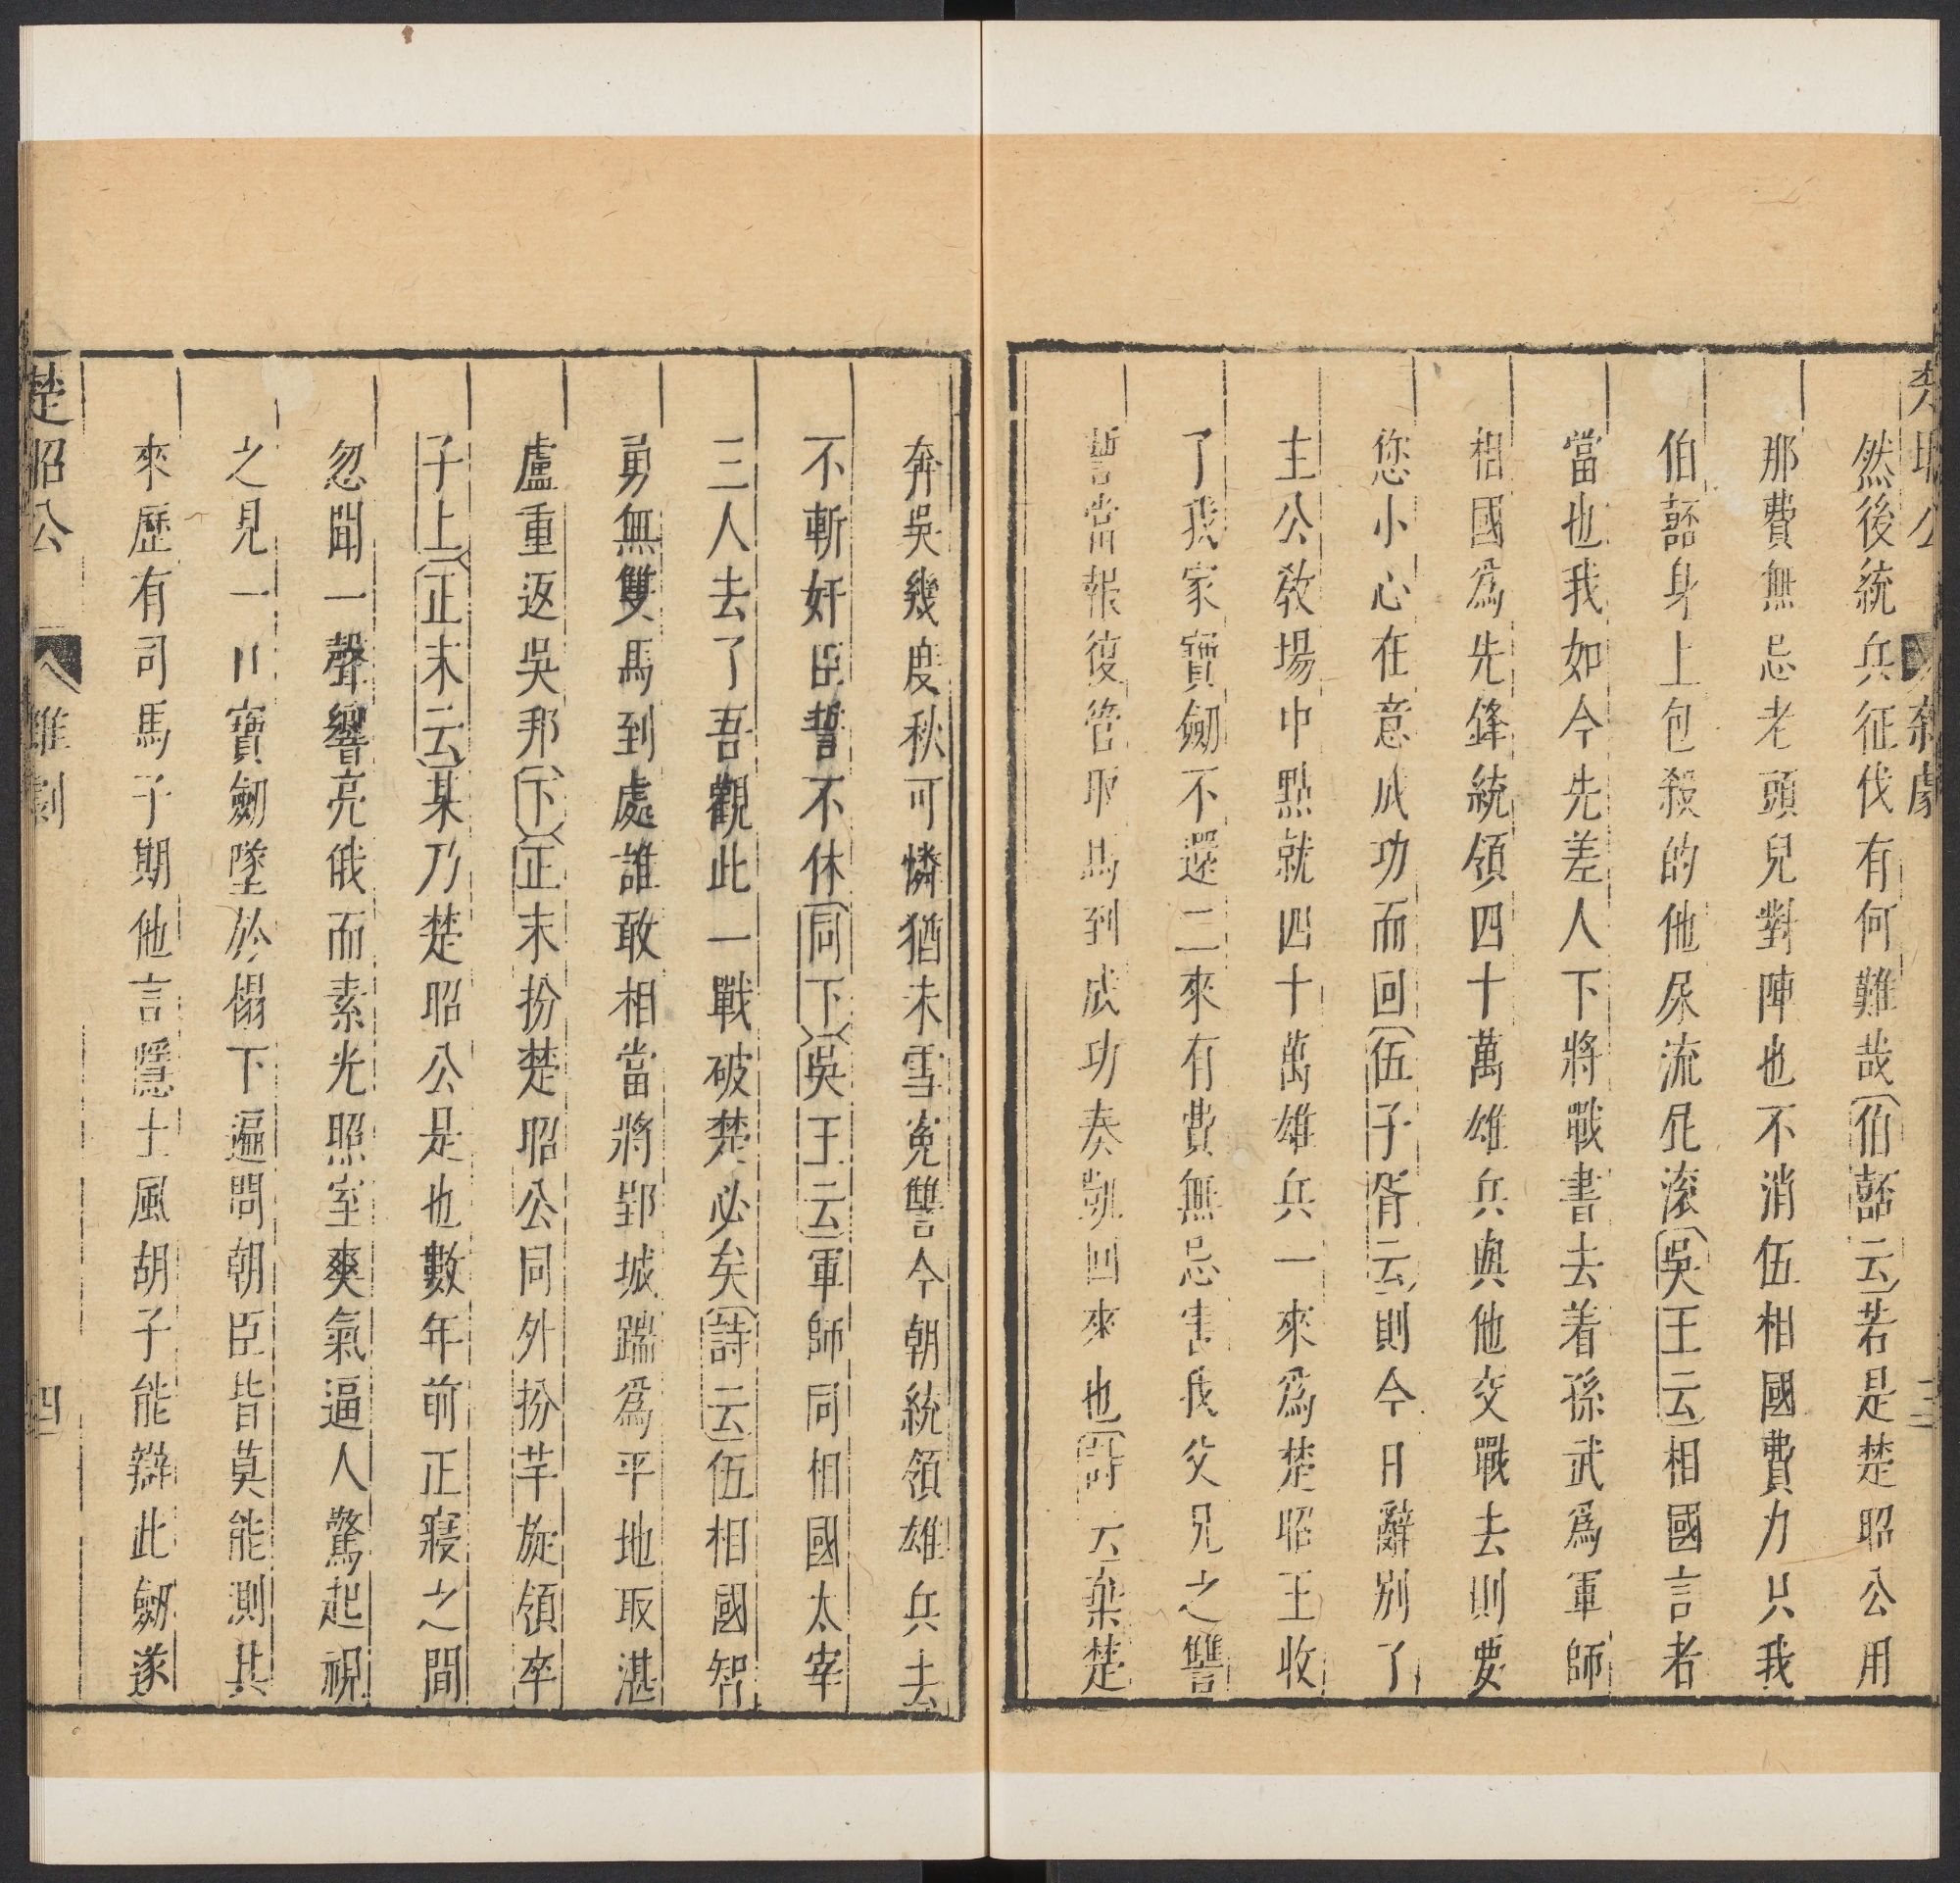 楚昭公 雜劇 三
然後統兵征伐有何難哉伯嚭云若是楚昭公用
那費無忌老頭兒對陣也不消伍相國費力只我
伯嚭身上包殺的他尿流屁滚吳王云相國言者
當也我如今先差人下將戰書去着孫武爲軍師
相國爲先鋒統領四十萬雄兵與他交戰去則要
您小心在意成功而回伍子胥云則今日辭別了
主公教場中點就四十萬雄兵一來爲楚昭王收
了我家寶劒不還二來有費無忌害我父兄之讐
誓當報復管取馬到成功奏凱回來也詩云棄楚
奔吳幾度秋可憐猶未雪寃讐今朝統領雄兵去
不斬奸臣誓不休同下吳王云軍師同相國太宰
三人去了吾觀此一戰破楚必矣詩云伍相國智
勇無雙馬到處誰敢相當將郢城踹爲平地取湛
盧重返吳邦下正末扮楚昭公同外扮芊旋領卒
子上正末云某乃楚昭公是也數年前正寢之間
忽聞一聲響亮俄而素光照室爽氣逼人驚起視
之見一口寶劒墜於榻下遍問朝臣皆莫能測其
來歷有司馬子期他言隱士風胡子能辯此劒遂
楚昭公 雜劇 四